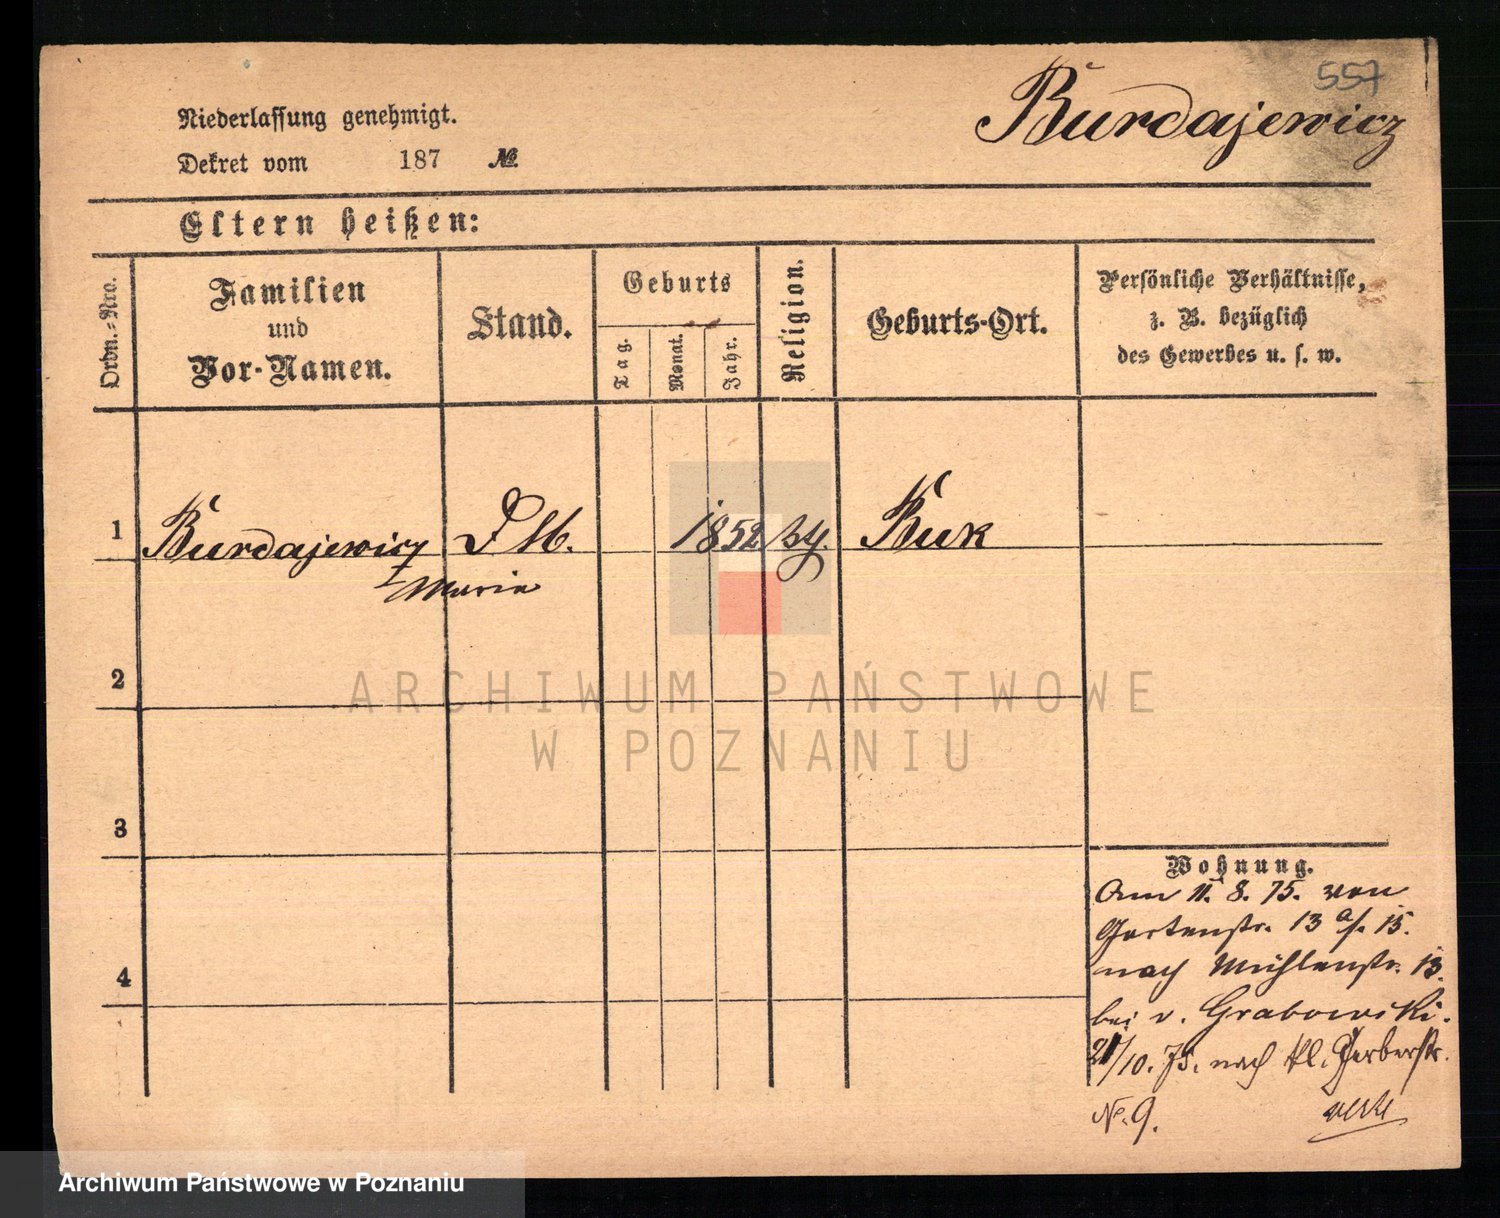 557
Burdajewicz
Niederlassung genehmigt.
Dekret vom 187 №
Eltern heißen:
Ordn.-Nro.
Familien
und
Vor-Namen.
Stand.
Geburts
Tag.
Monat.
Jahr.
Religion.
Geburts-Ort.
Persönliche Verhältnisse,
z. B. bezüglich
des Gewerbes u. s. w.
1 Burdajewicz D M. 1852 Buk
Maria
2
3
4
Wohnung.
Am 11. 8. 75. von
Gartenstr. 13 a/. 15.
nach Mühlenstr. 13.
bei v. Grabowski.
21/10. 75. nach kl. Gerberstr.
No. 9.
ARCHIWUM PAŃSTWOWE
W POZNANIU
Archiwum Państwowe w Poznaniu